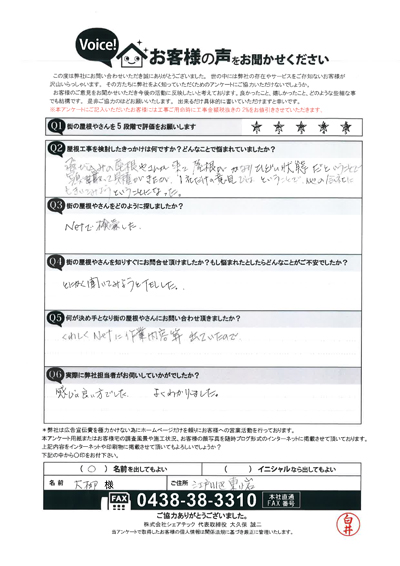 Voice!
お客様の声をお聞かせください
この度は弊社にお問い合わせいただき誠にありがとうございました。世の中には弊社の存在やサービスをご存知ないお客様が
沢山いらっしゃいます。その方たちに弊社をよく知っていただくためのアンケートにご協力いただけないでしょうか。
お客様のご意見をお聞かせいただき今後の活動に反映したいと考えております。良かったこと、嬉しかったこと、どのような些細な事
でも結構です。是非ご協力のほどお願いいたします。出来るだけ具体的に書いていただけますと幸いです。
Q1 街の屋根やさんを5段階で評価をお願いします
Q2 屋根工事を検討したきっかけは何ですか?どんなことで悩まれていましたか?
Q3 街の屋根やさんをどのように探しましたか?
Netで検索した。
Q4 街の屋根やさんを知りすぐにお問合せ頂けましたか?もし悩まれたとしたらどんなことがご不安でしたか?
とにかく聞いてみようとTELした。
Q5 何が決め手となり街の屋根やさんにお問い合わせ頂きましたか?
くわしくNetに作業内容等 出ていたので
Q6 実際に弊社担当者がお伺いしていかがでしたか?
感じの良い方でした。 よくわかりました。
*弊社は広告宣伝費を極力かけない為にホームページだけを頼りにお客様への営業活動を行っております。
本アンケート用紙またはお客様宅の調査風景や施工状況、お客様の顔写真を随時ブログ形式のインターネットに掲載させて頂いております。
上記内容をインターネットや印刷物に掲載させて頂いてもよろしいでしょうか?
下記の中から〇印をお付け下さい。
(〇)名前を出してもよい ( )イニシャルなら出してもよい
名前 様 ご住所 江戸川区
FAX 0438-38-3310 本社直通 FAX番号
ご協力ありがとうございました。
株式会社シェアテック 代表取締役 大久保 誠二
当アンケートで取得したお客様の個人情報は関係法規に基づき厳正に管理いたします。
白井